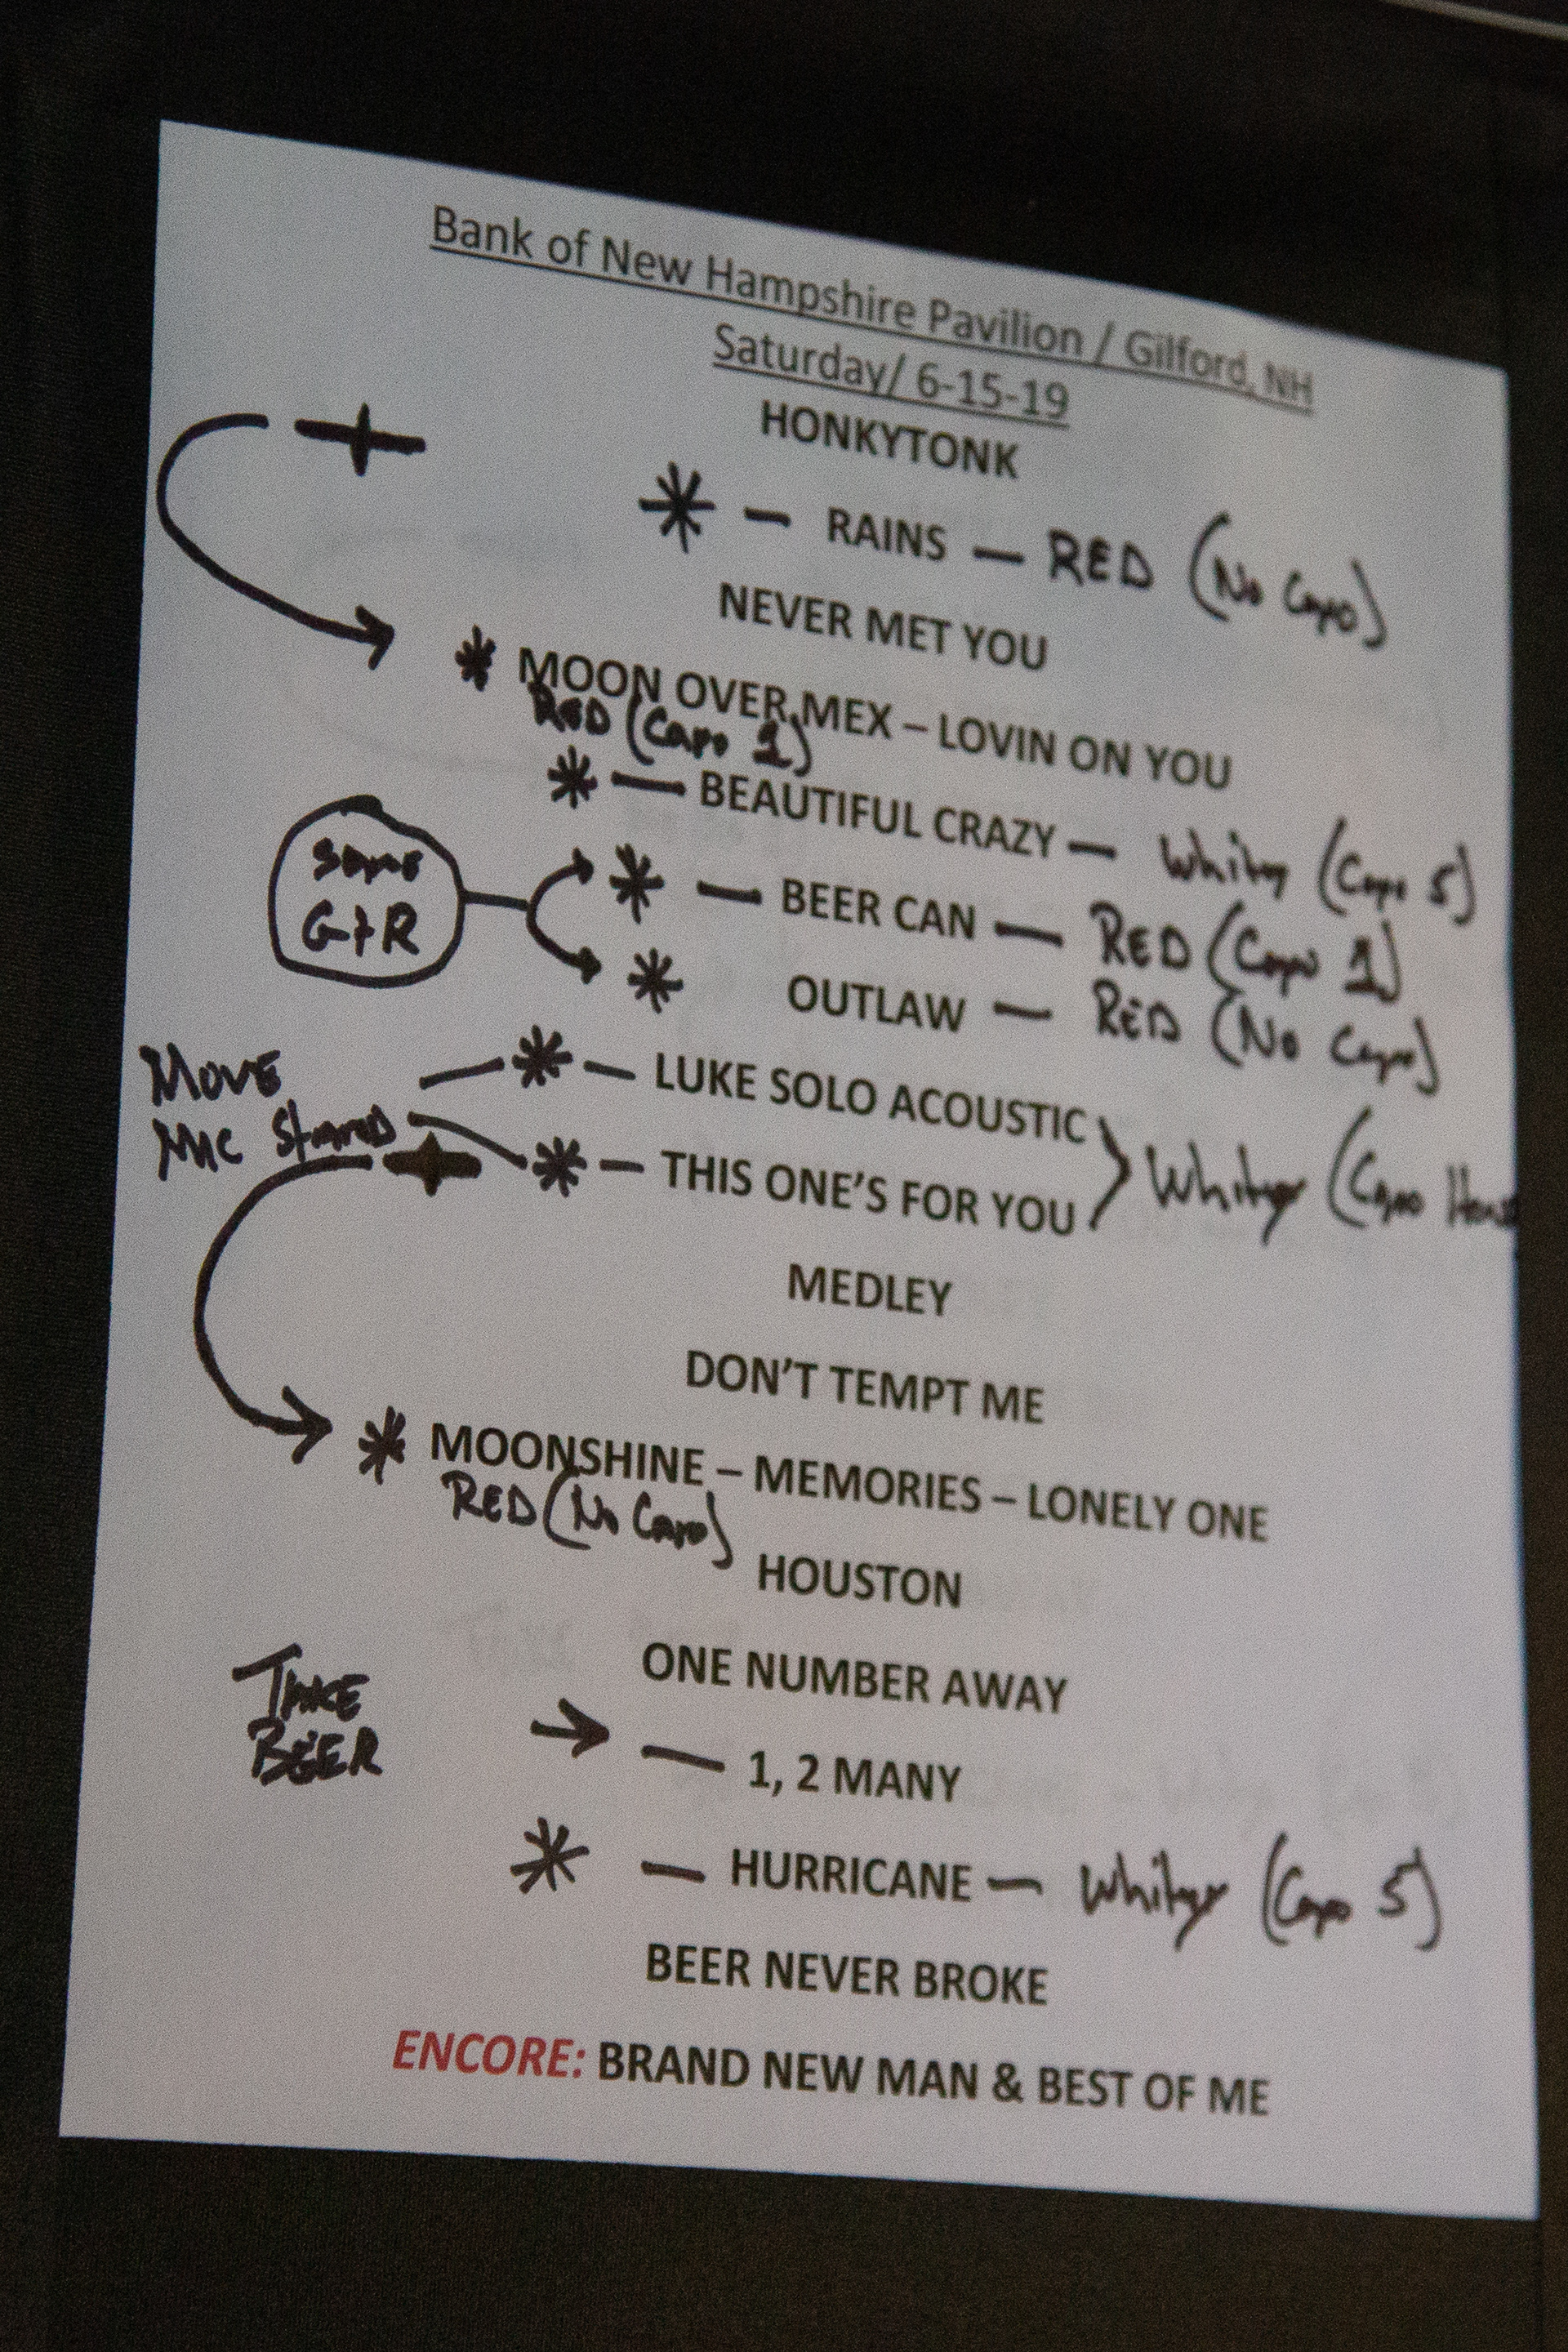 Bank of New Hampshire Pavilion / Gilford, NH
Saturday/ 6-15-19
HONKYTONK
* — RAINS — RED (No Capo)
NEVER MET YOU
* MOON OVER MEX – LOVIN ON YOU
RED (Capo 1)
* — BEAUTIFUL CRAZY — Whitey (Capo 5)
Same
GTR
* — BEER CAN — RED (Capo 1)
* OUTLAW — RED (No Capo)
MOVE
MIC Stand
* — LUKE SOLO ACOUSTIC
* — THIS ONE'S FOR YOU
Whitey (Capo
MEDLEY
DON'T TEMPT ME
* MOONSHINE – MEMORIES – LONELY ONE
RED (No Capo)
HOUSTON
ONE NUMBER AWAY
TAKE
BEER
→ — 1, 2 MANY
* — HURRICANE — Whitey (Capo 5)
BEER NEVER BROKE
ENCORE: BRAND NEW MAN & BEST OF ME